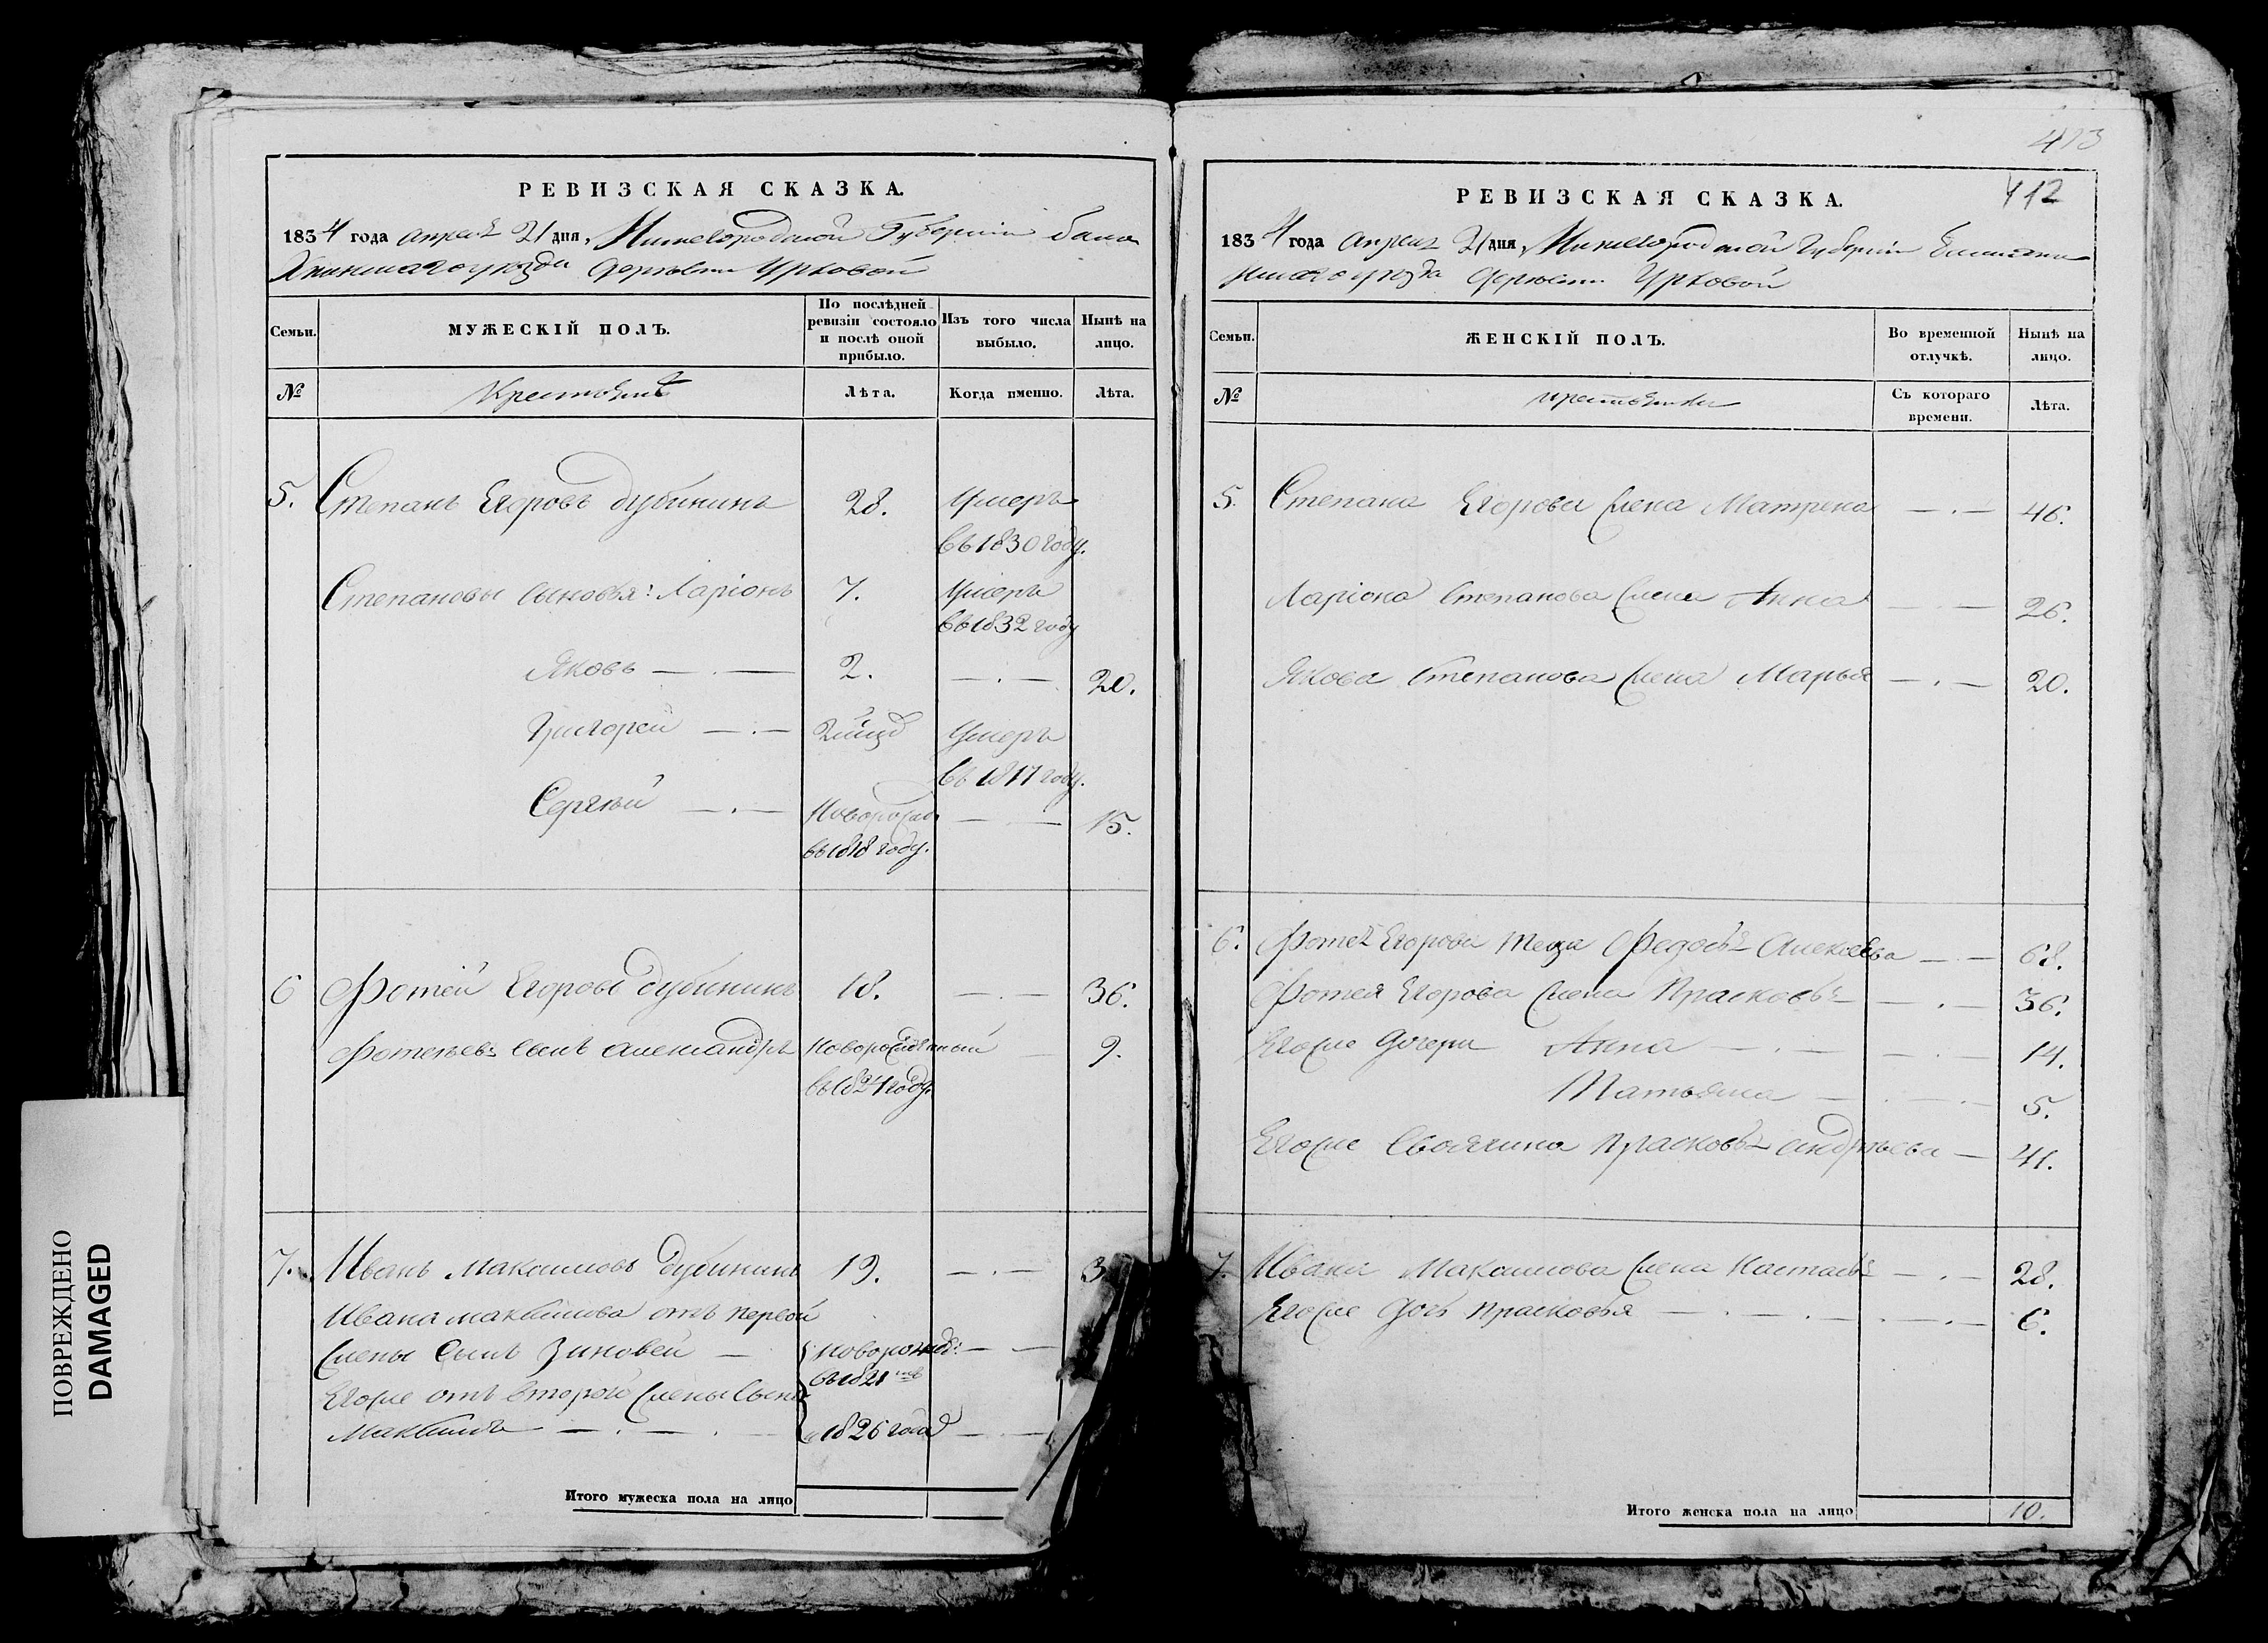 РЕВИЗСКАЯ СКАЗКА.
1834 года апреля 21 дня, Нижегородской Губернии Бала
хнинскаго уезда деревни Урковой
Семьи.
МУЖЕСКІЙ ПОЛЪ.
По послѣдней ревизіи состояло и послѣ оной прибыло.
Изъ того числа выбыло.
Нынѣ на лицо.
№
Крестьянѣ
Лѣта.
Когда именно.
Лѣта.
5. Степанъ Егоровъ Дубининъ 28. Умеръ
въ 1830 году.
Степановы сыновья: Ларіонъ 7. Умеръ
въ 1832 году
Яковъ — . — 2. — . — 20.
Григорей — . — Умеръ
въ 1817 году.
Сергѣй — . — Новорожд — . — 15.
въ 1818 году.
6 Фотей Егоровъ Дубининъ 18. — . — 36.
Фотеевъ сынъ Александръ Новорожденный — 9.
въ 1824 году.
7. Иванъ Максимовъ Дубининъ 19. — . — 3
Ивана Максимова отъ первой
жены сынъ Зиновей — новорожд: — —
въ 1821
Егоже отъ второй жены сынъ
Максимъ — . — . 1826 года — . —
Итого мужеска пола на лицо
ПОВРЕЖДЕНО
DAMAGED
413
412
РЕВИЗСКАЯ СКАЗКА.
1834 года апреля 21 дня, Нижегородской Губерніи
уезда деревни Урковой
Семьи.
ЖЕНСКІЙ ПОЛЪ.
Во временной отлучкѣ.
Нынѣ на лицо.
№
крестьянки
Съ котораго времени.
Лѣта.
5. Степана Егорова жена Матрена — . — 46.
Ларіона Степанова жена Анна — . — 26.
Якова Степанова жена Марья — . — 20.
6. Фотея Егорова теща Федосья Алексеева — — 68.
Фотея Егорова жена Прасковья — . — 36.
Егоже дочери Анна — . — — . — 14.
Татьяна — . — . — 5.
Егоже своячина Прасковья Андреева — 41.
7. Ивана Максимова жена Настасья — . — 28.
Егоже дочь Прасковья — . — . — . — 6.
Итого женска пола на лицо 10.